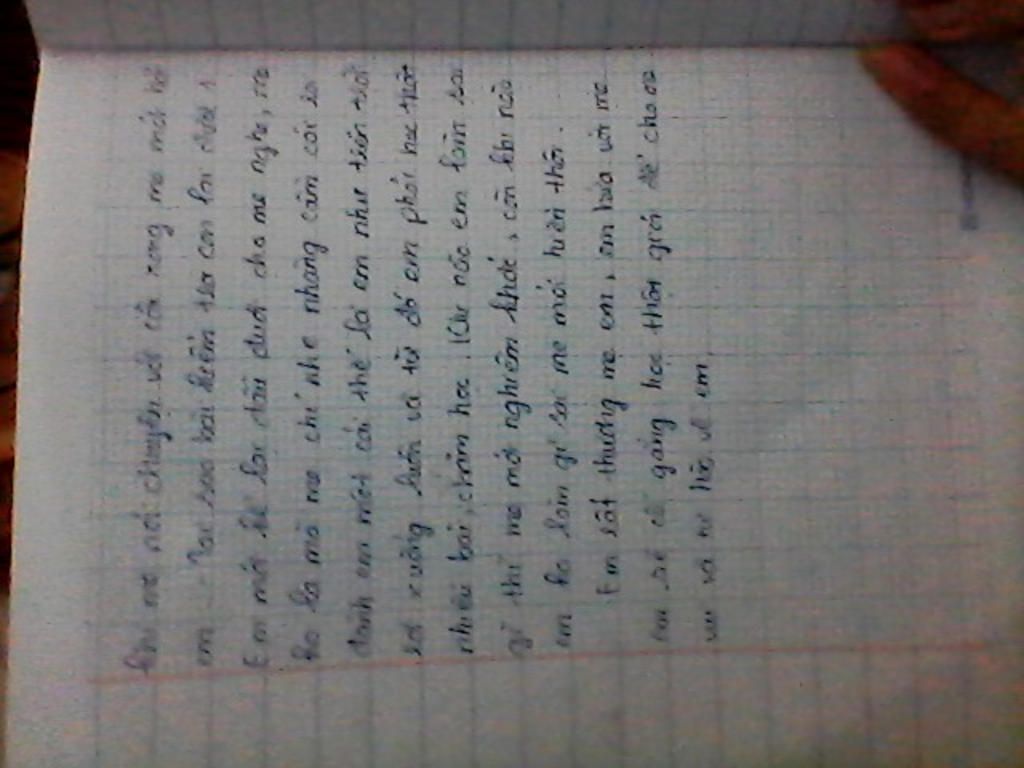 khi mẹ nói chuyện với cô xong mẹ mới hỏi
em - Tại sao bài kiểm tra con lại được 1
Em mới kể lại đầu đuôi cho mẹ nghe, mẹ
ko la mà mẹ chỉ nhẹ nhàng cầm cái
đánh em một cái thế là em như tiên trời
rơi xuống luôn và từ đó em phải học thật
nhiều bài, chăm học. Khi nào em làm sai
gì thì mẹ mới nghiêm khắc, còn khi nào
em ko làm gì sai mẹ mới hiền thôi.
Em rất thương mẹ em, em hứa với mẹ
em sẽ cố gắng học thật giỏi để cho mẹ
vui và tự hào về em.